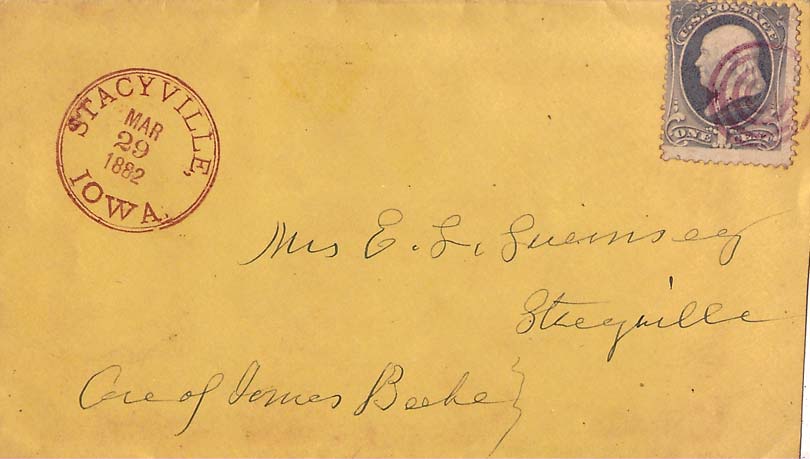 U.S. POSTAGE
ONE CENT
STACYVILLE,
MAR
29
1882
IOWA.
Mrs E. L. Guernsey
Stacyville
Care of James